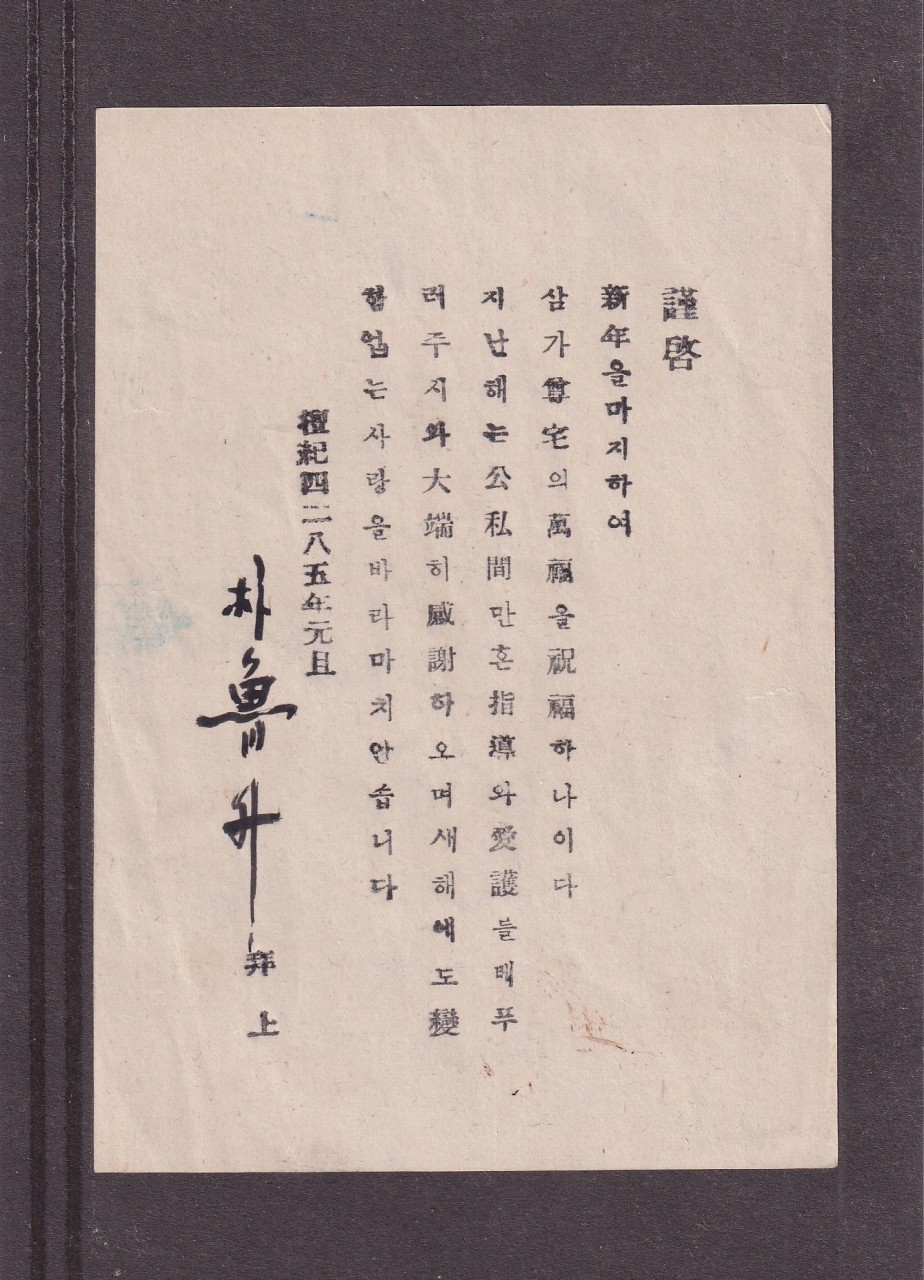 謹啓
新年을마지하여
삼가尊宅의萬福을祝福하나이다
지난해는公私間만흔指導와愛護를베푸
러주시와大端히感謝하오며새해에도變
함업는사랑을바라마지안습니다
檀紀四二八五年元旦
朴魯升
拜上